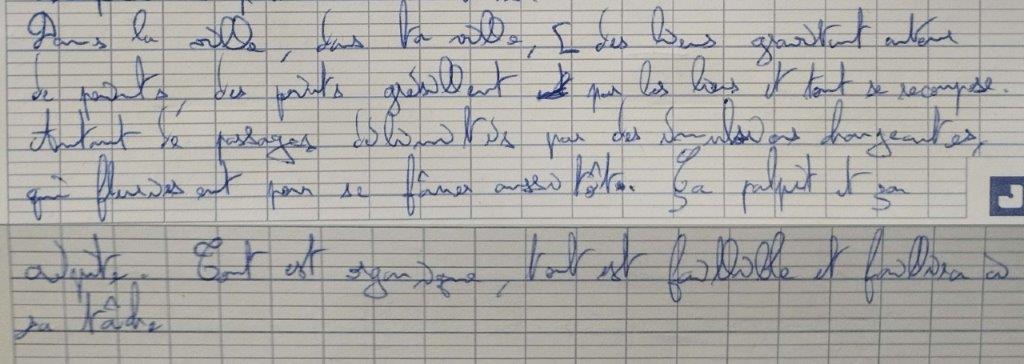 Dans la ville, dans la ville, [ des liens gravitant autour
de points, des points grésillent par les liens et tout se recompose.
Autant de passages délimités par des impulsions changeantes,
qui fleurissent pour se faner aussitôt. Ça palpit et ça
Tout est organique, tout est faillible et faillira à
sa tâche